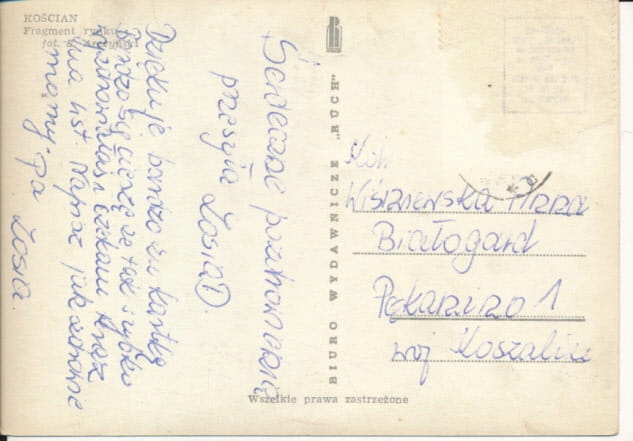 KOŚCIAN
Fragment rynku
fot. S. Arczyński
Serdeczne pozdrowienia
przesyła Zosia D.
Dziękuję bardzo za kartkę
bardzo się cieszę że tak szybko
czekam
na list. Napisz jak zdrowie
mamy. Pa
Zosia.
BIURO WYDAWNICZE „RUCH"
Wiśniewska Anna
Białogard
1
woj Koszalin
Wszelkie prawa zastrzeżone